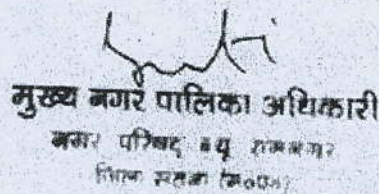 मुख्य नगर पालिका अधिकारी
नगर परिषद न्यू रामनगर
जिला सतना (म०प्र०)